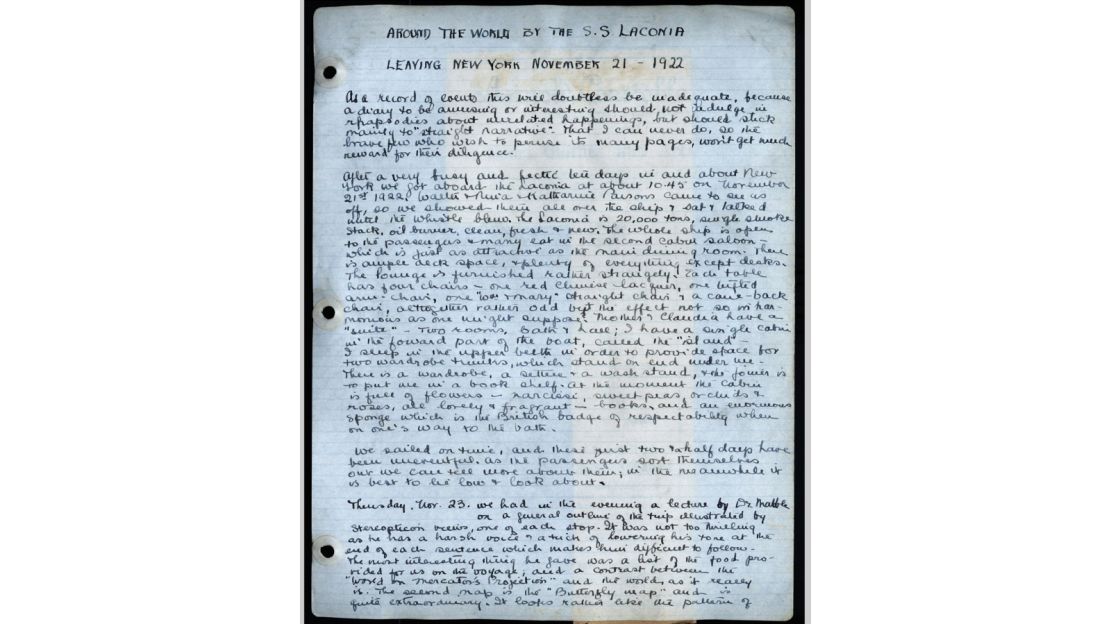 AROUND THE WORLD BY THE S.S LACONIA
LEAVING NEW YORK NOVEMBER 21 - 1922
As a record of events this will doubtless be inadequate, because
a diary to be amusing or interesting should not indulge in
rhapsodies about unrelated happenings, but should stick
mainly to "straight narrative". That I can never do, so the
brave few who wish to peruse its many pages, won't get much
reward for their diligence.
After a very busy and hectic ten days in and about New
York we got aboard the Laconia at about 10.45 on November
21st 1922. Walter & & Katharine Parsons came to see us
off, so we showed them all over the ship & sat & talked
until the whistle blew. The Laconia is 20,000 tons, single smoke
stack, oil burner, clean, fresh & new. The whole ship is open
to the passengers & many eat in the second cabin saloon -
which is just as attractive as the main dining room. There
is ample deck space, & plenty of everything except desks.
The lounge is furnished rather strangely. Each table
has four chairs - one red Chinese lacquer, one tufted
arm-chair, one "Wm & Mary" straight chair & a cane-back
chair, altogether rather odd but the effect not so inhar-
monious as one might suppose. Mother & Claudia have a
"suite" - two rooms, bath & hall; I have a single cabin
in the foward part of the boat, called the "island" -
I sleep in the upper berth in order to provide space for
two wardrobe trunks, which stand on end under me -
There is a wardrobe, a settee & a wash stand, & the joiner is
to put me in a book shelf. At the moment the cabin
is full of flowers - narcissi, sweet peas, orchids &
roses, all lovely & fragrant - books, and an enormous
sponge which is the British badge of respectability when
on one's way to the bath.
We sailed on time, and these first two & half days have
been uneventful. As the passengers sort themselves
out we can tell more about them; in the meanwhile it
is best to lie low & look about.
Thursday. Nov. 23. We had in the evening a lecture by Dr.
on a general outline of the trip illustrated by
stereopticon views, one of each stop. It was not too thrilling
as he has a harsh voice & a trick of lowering his tone at the
end of each sentence which makes him difficult to follow -
The most interesting thing he gave was a list of the food pro-
vided for us on the voyage; and a contrast between the
"World on Mercator's Projection" and the world, as it really
is. The second map is the "Butterfly map" and is
quite extraordinary. It looks rather like the pattern of